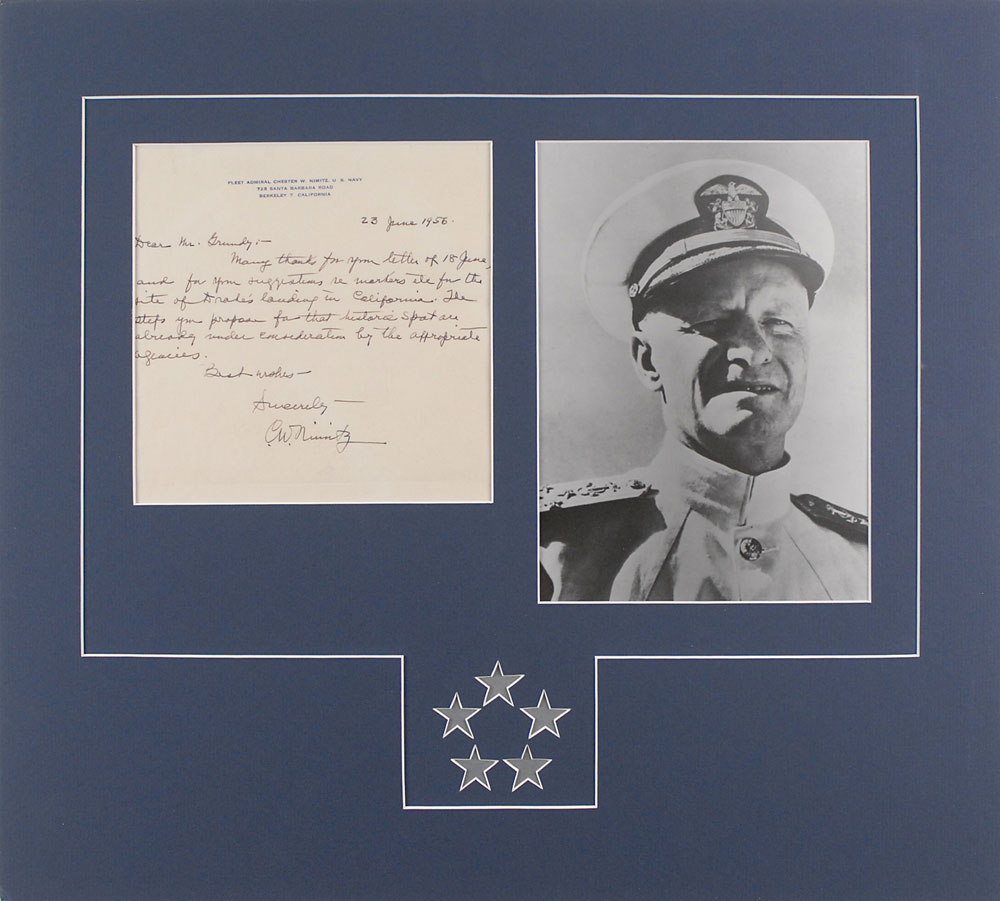 FLEET ADMIRAL CHESTER W. NIMITZ, U. S. NAVY
728 SANTA BARBARA ROAD
BERKELEY 7 CALIFORNIA
23 June 1956.
Dear Mr. Grundy:—
Many thanks for your letter of 18 June,
and for your suggestions re markers etc for the
site of Drake's landing in California. The
steps you propose for that historic spot are
already under consideration by the appropriate
agencies.
Best wishes—
Sincerely—
C.W. Nimitz